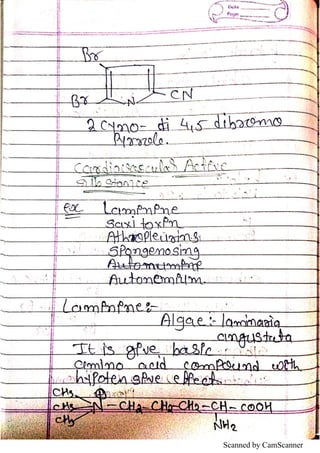 Date
Page
Br
Br
N
CN
2 Cyno- di 4,5 dibromo
Pyrrole.
Cardiovascular Active
Substance
ex Laminine
Saxitoxin
Athopleurins
Spongenosing
Autonomium.
Laminine :-
Algae :- laminaria
angustata
It is give basic
amino acid compound with
hypotensive effect.
CH3
CH3
CH3
N - CH2 - CH2 - CH2 - CH - COOH
NH2
Scanned by CamScanner